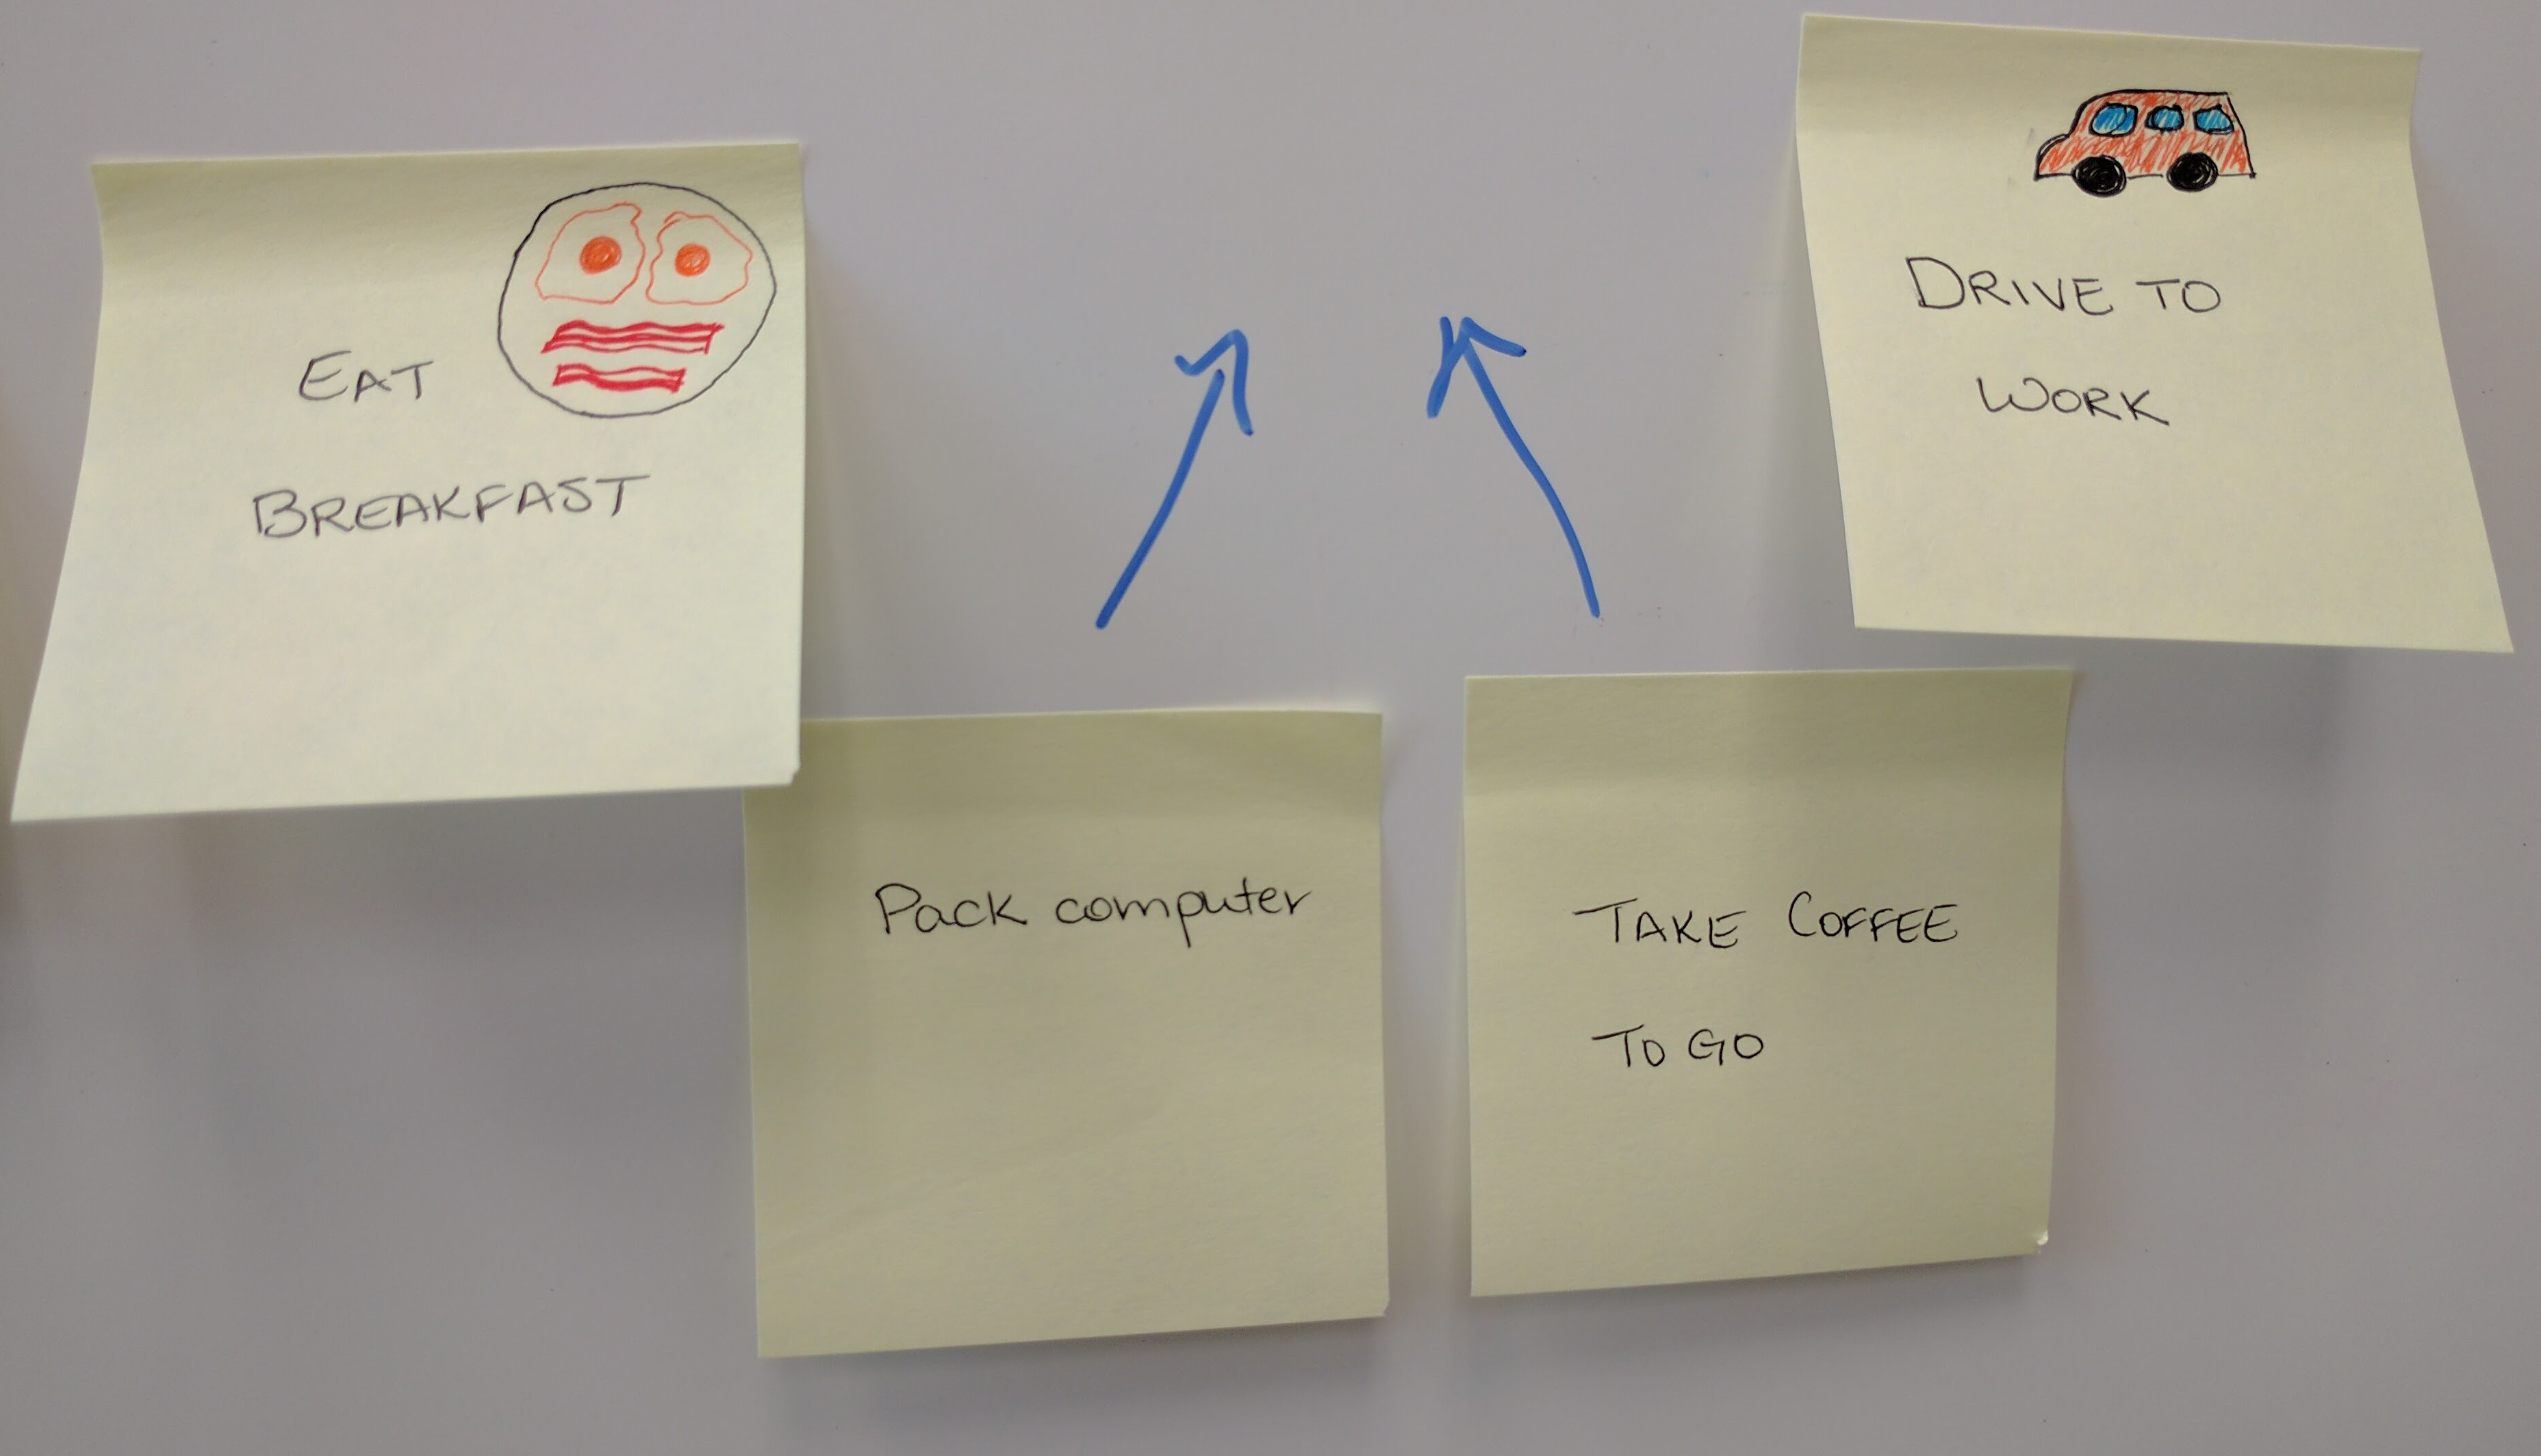 EAT
BREAKFAST
DRIVE TO
WORK
Pack computer
TAKE COFFEE
TO GO